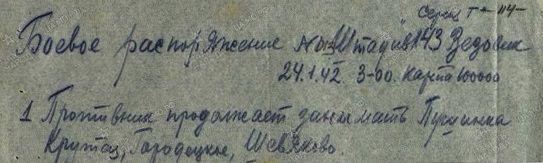 Боевое распоряжение Штадив 143 Ведовец
24.1.42 3-00. Карта 100000
1 Противник продолжает занимать Пушинка
Крутац, Городецкое, Шевяково.